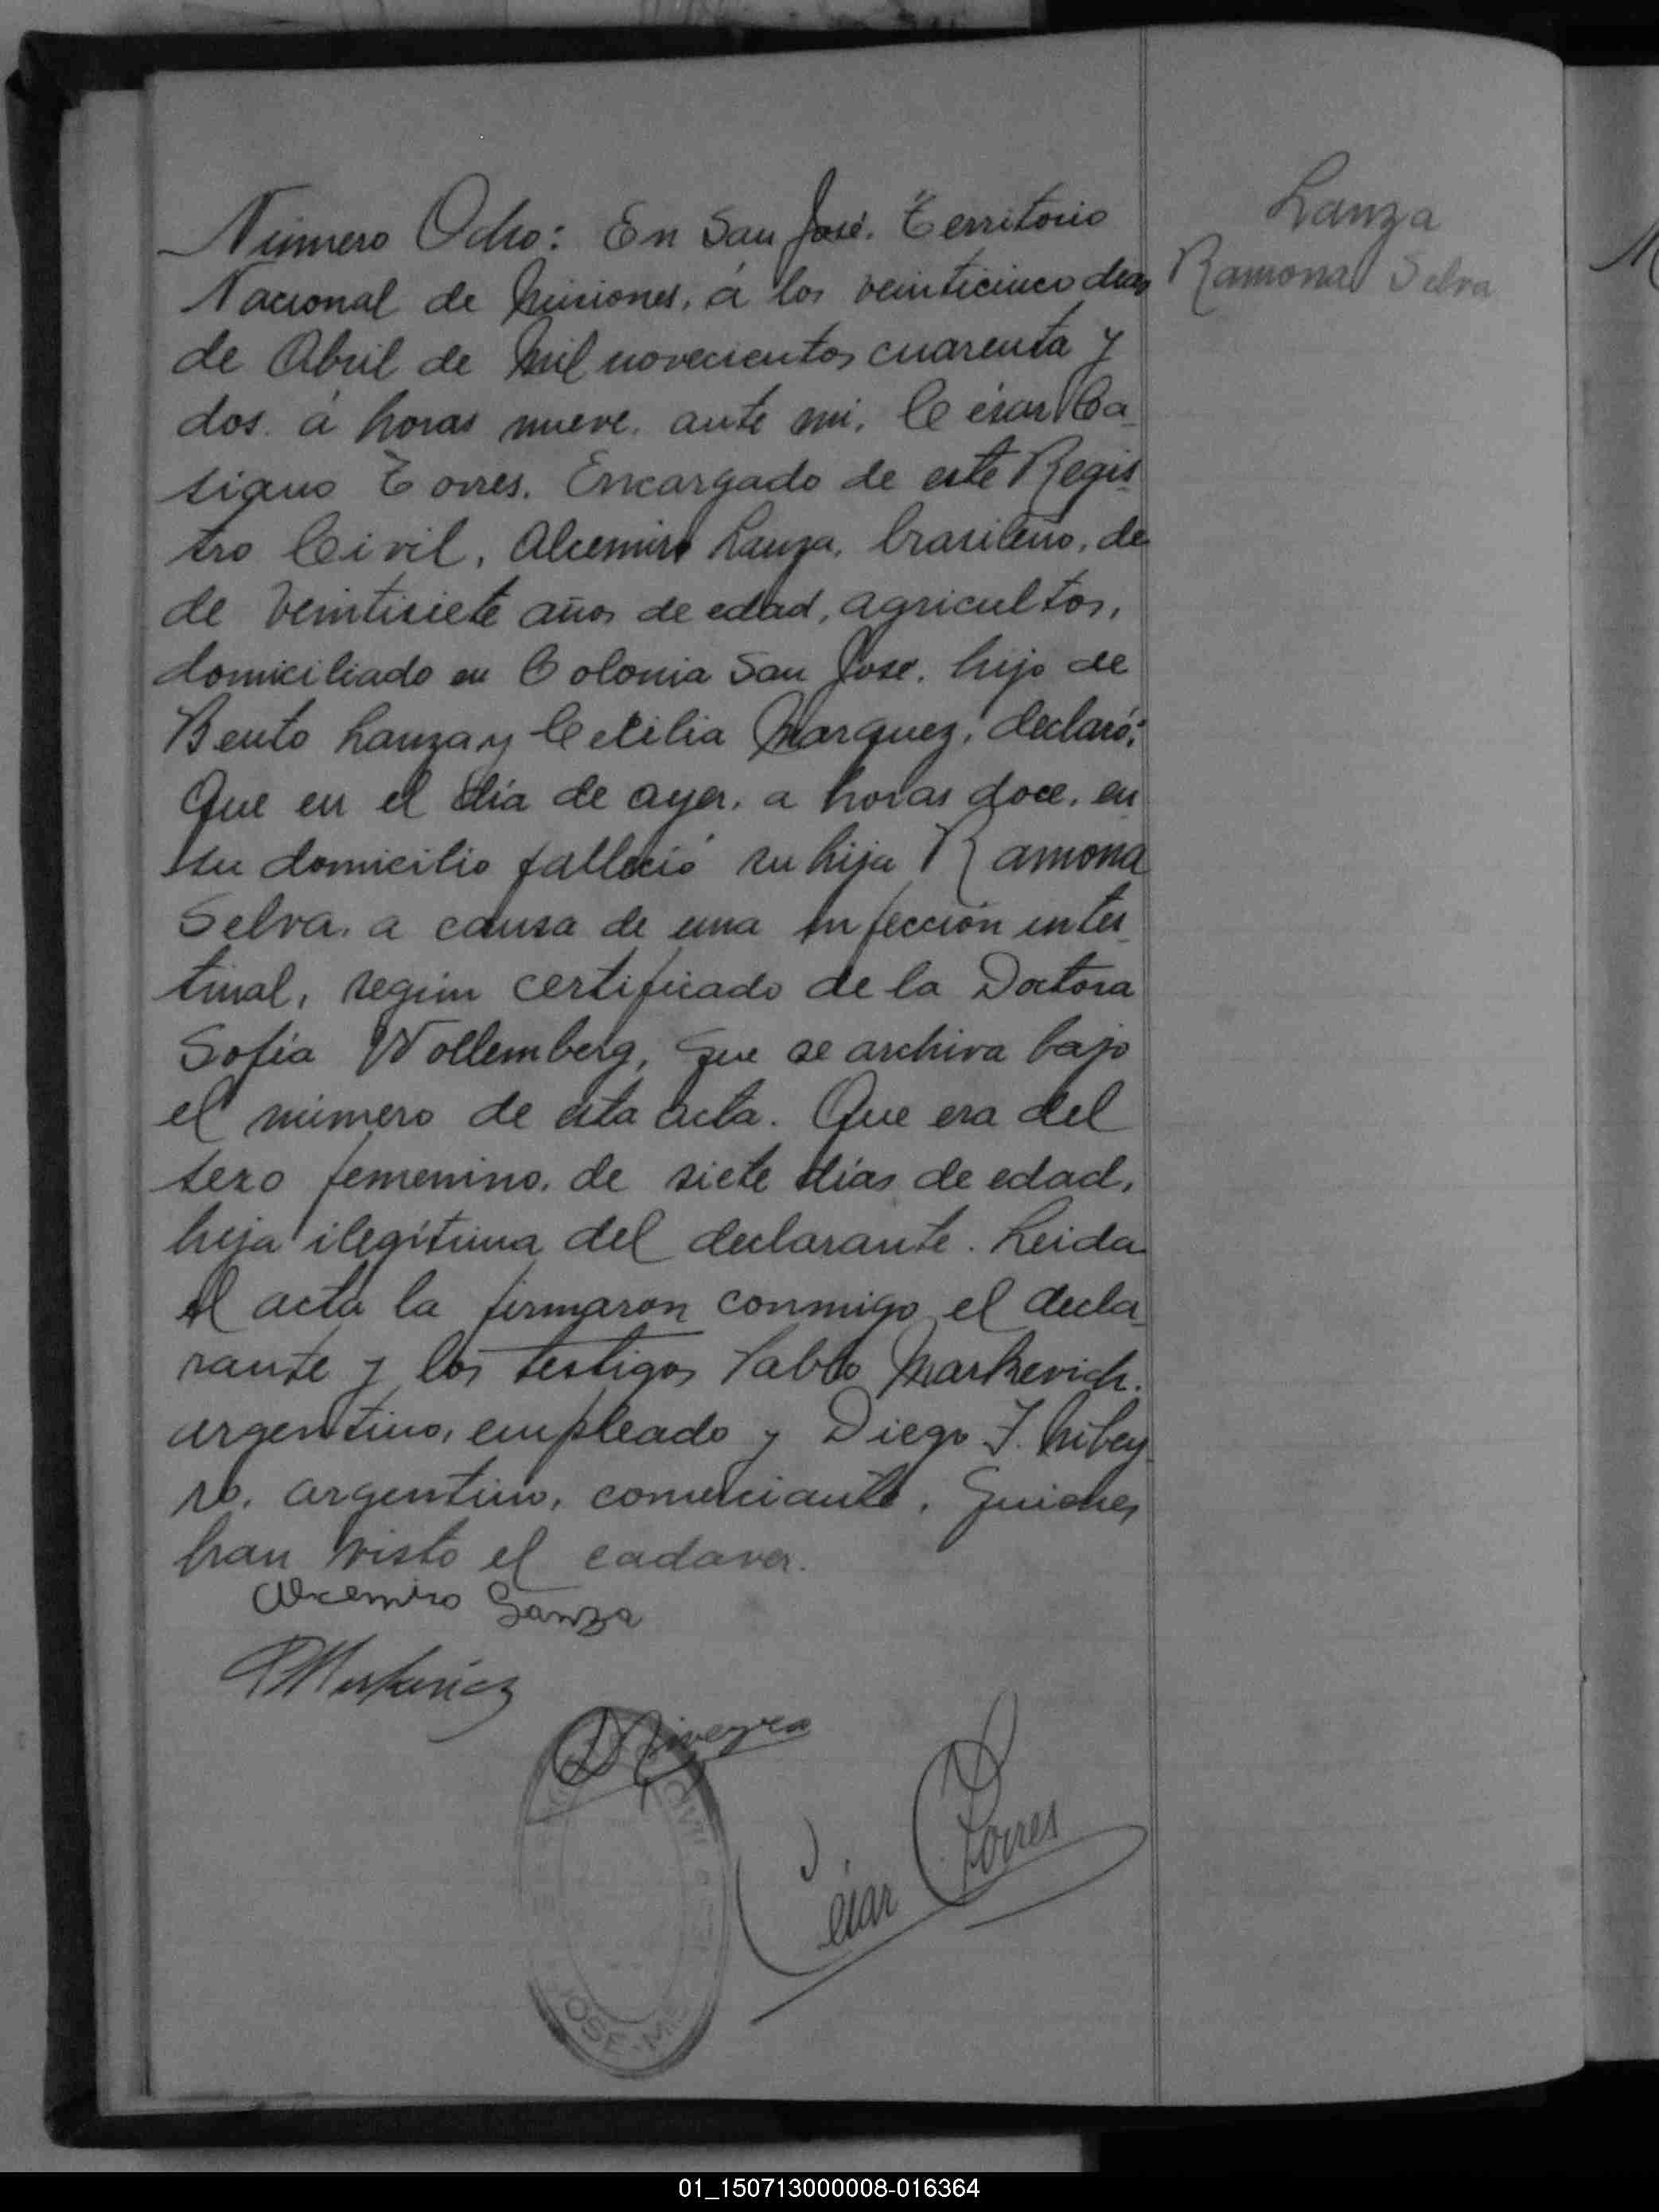 Número Ocho: En San José. Territorio
Nacional de Misiones, á los veinticinco dias
de Abril de Mil novecientos cuarenta y
dos. á horas nueve. ante mi, César Ca-
siano Torres. Encargado de este Regis-
tro Civil, Alcemiro Lanza, brasileño, de
de Veintisiete años de edad, agricultor,
domiciliado en Colonia San José. hijo de
Bento Lanza y Cecilia Marquez, declaró:
Que en el día de ayer. a horas doce. en
su domicilio falleció su hija Ramona
Selva. a causa de una infección intes-
tinal, según certificado de la Doctora
Sofía Wollemberg, que se archiva bajo
el número de esta acta. Que era del
sexo femenino. de siete días de edad,
hija ilegítima del declarante. Leida
el acta la firmaron conmigo el decla-
rante y los testigos Pablo Markevich.
argentino, empleado y Diego F.
argentino, comerciante, quienes
han visto el cadaver.
Lanza
Ramona Selva
Alcemiro Sanza
César Torres
01_150713000008-016364